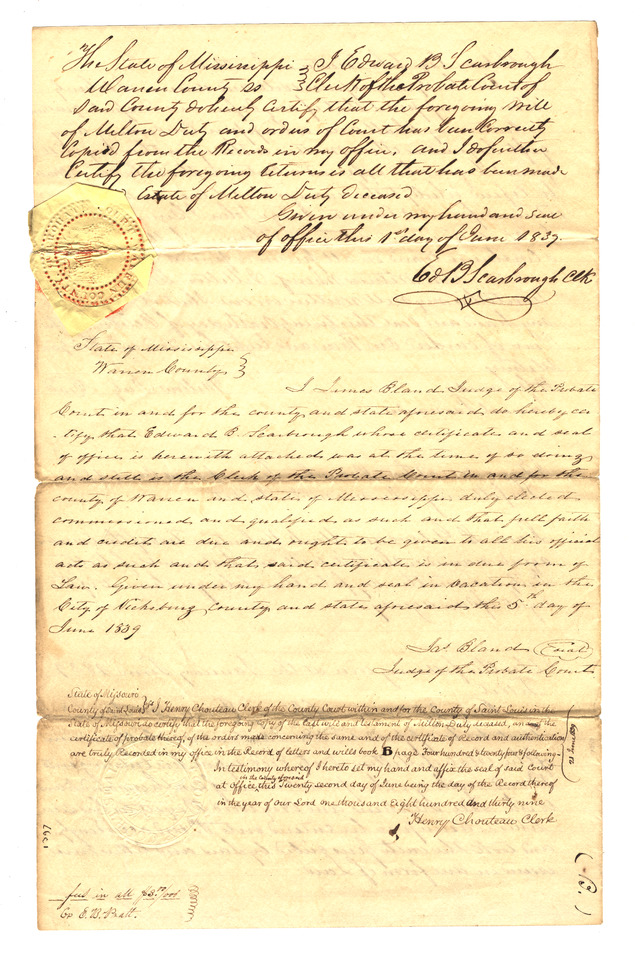 The State of Mississippi } I Edward B Scarbrough
Warren County ss } Clerk of the Probate Court of
said County do hereby Certify that the foregoing Will
of Melton Duty and orders of Court has been Correctly
Copied from the Records in my office, and I do further
Certify the foregoing returns is all that has been made
Estate of Melton Duty deceased
Given under my hand and seal
of office this 1st day of June 1839.
Ed B Scarbrough Clk
State of Mississippi
Warren County }
I James Bland Judge of the Probate
Court in and for the county and state aforesaid do hereby cer
-tify that Edward B. Scarbrough whose certificate and seal
of office is herewith attached was at the time of so doing
and still is the Clerk of the Probate Court in and for the
county of Warren and state of Mississippi duly elected
commissioned and qualified as such and that full faith
and credit are due and ought to be given to all his official
acts as such and that said certificate is in due form of
Law. Given under my hand and seal in vacation in the
City of Vicksburg county and state aforesaid this 5th day of
June 1839
Jas Bland (Seal)
Judge of the Probate Court
State of Missouri
County of Saint Louis } I Henry Chouteau Clerk of the County Court within and for the County of Saint Louis in the
State of Missouri do certify that the foregoing copy of the Last will and testament of Milton Duty deceased, and of the
certificate of probate thereof, of the orders made concerning the same and of the certificate of Record and authentication
are truly Recorded in my office in the Record of letters and wills book B page Four hundred & twenty four & following.
In testimony whereof I hereto set my hand and affix the seal of said Court
at Office this Twenty second day of June being the day of the Record thereof
in the year of our Lord one thousand eight hundred and thirty nine
Henry Chouteau Clerk
fees in all